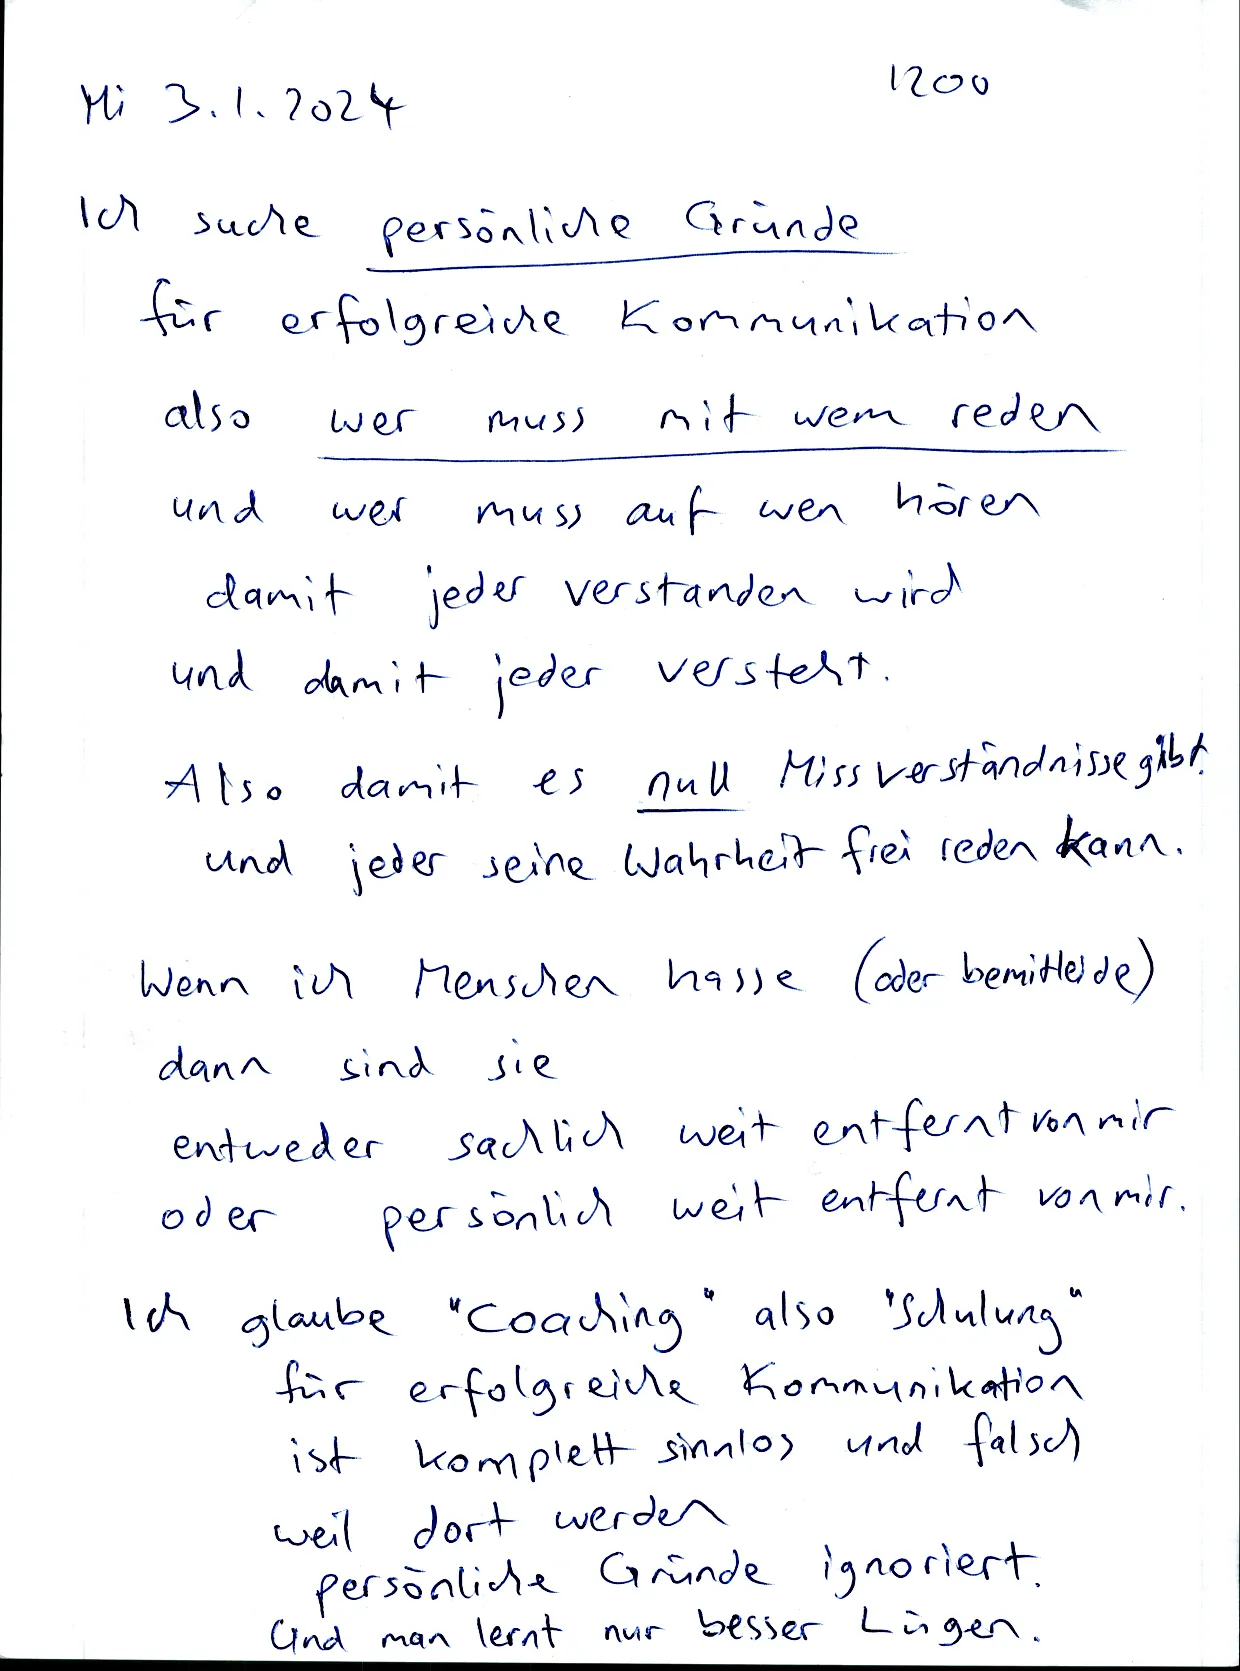 Mi 3.1.2024 1200
Ich suche persönliche Gründe
für erfolgreiche Kommunikation
also wer muss mit wem reden
und wer muss auf wen hören
damit jeder verstanden wird
und damit jeder versteht.
Also damit es null Missverständnisse gibt.
und jeder seine Wahrheit frei reden kann.
Wenn ich Menschen hasse (oder bemitleide)
dann sind sie
entweder sachlich weit entfernt von mir
oder persönlich weit entfernt von mir.
Ich glaube "Coaching" also "Schulung"
für erfolgreiche Kommunikation
ist komplett sinnlos und falsch
weil dort werden
persönliche Gründe ignoriert.
Und man lernt nur besser Lügen.